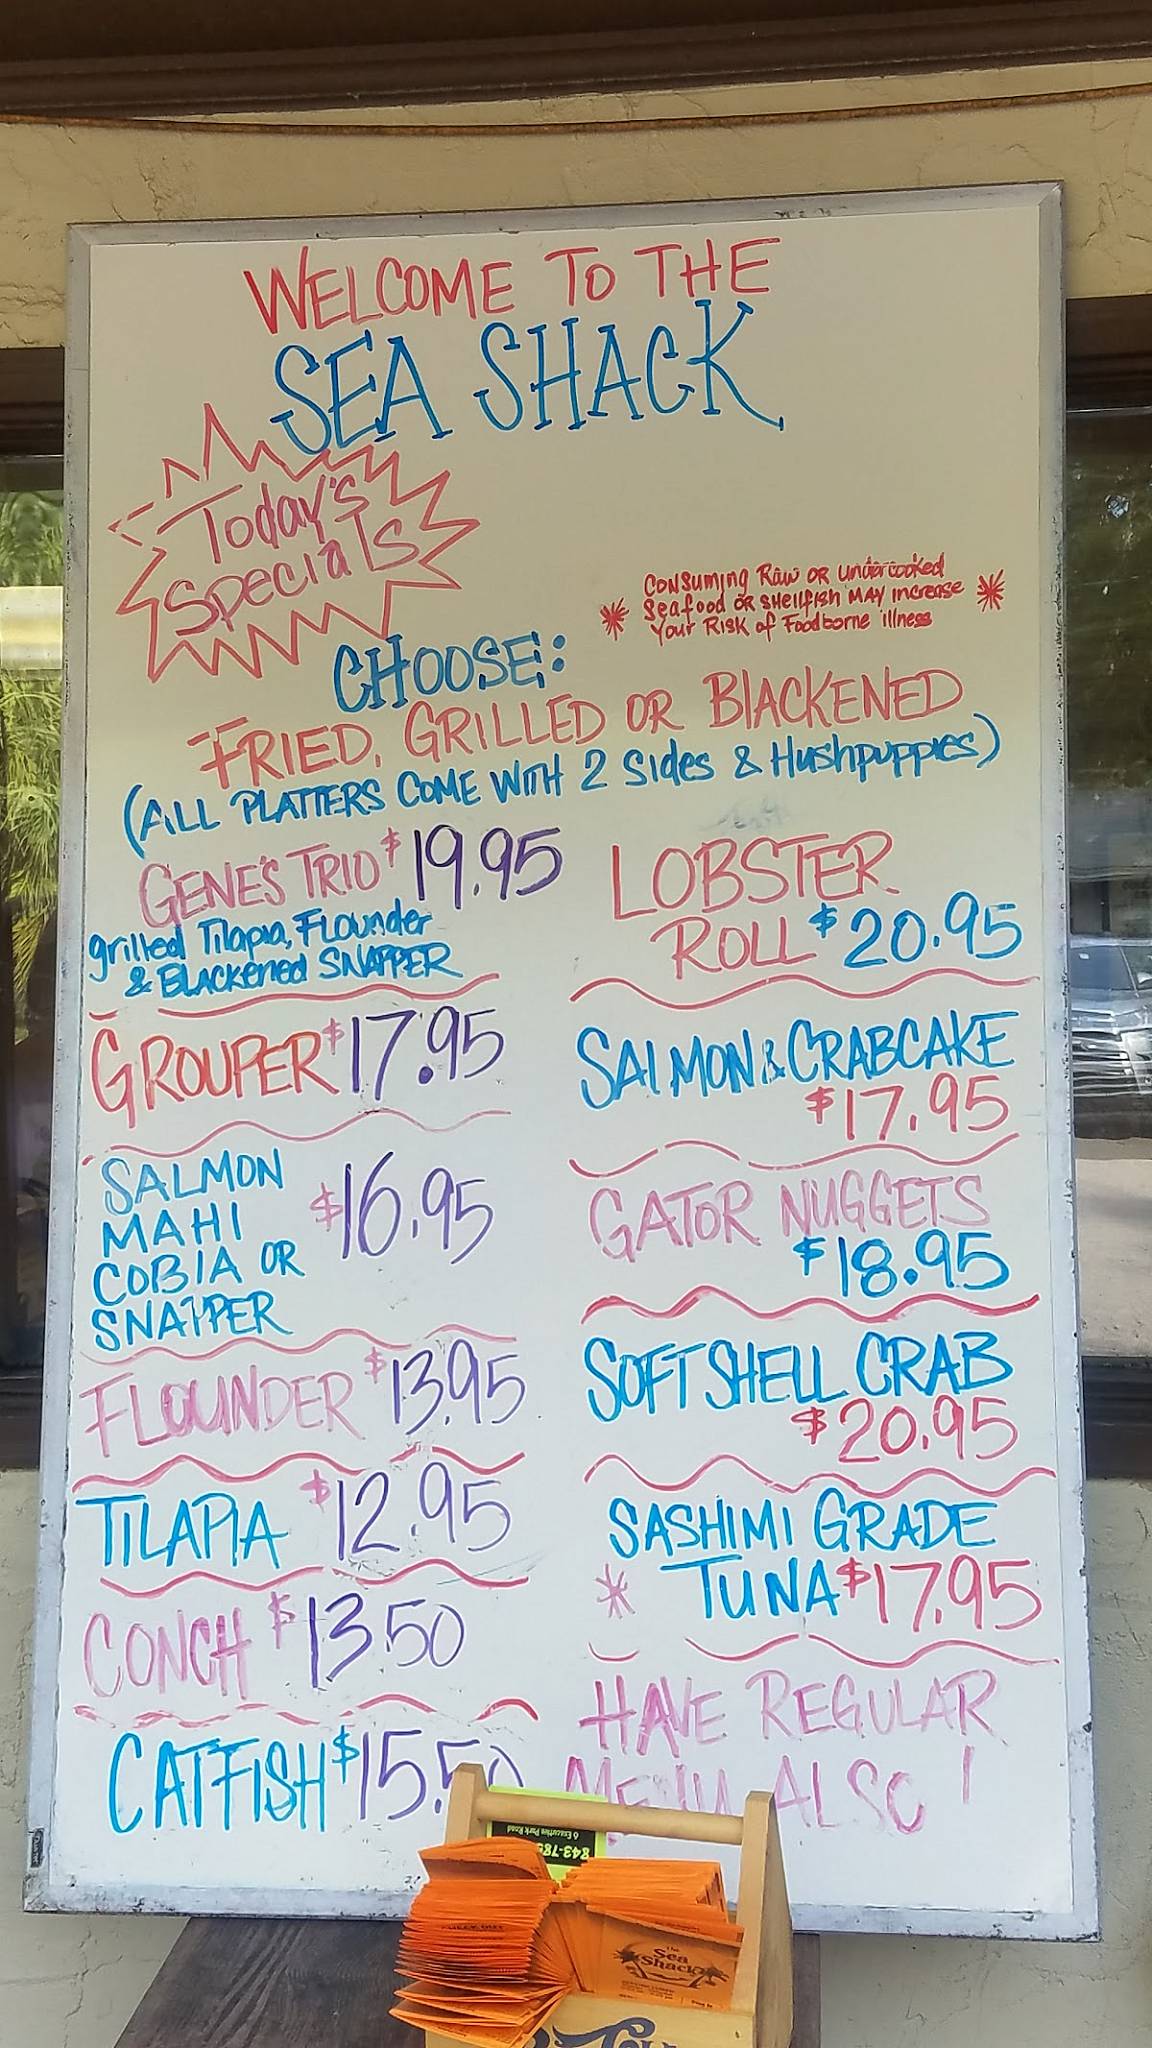 WELCOME TO THE
SEA SHACK
Today's
Specials
* CONSUMING RAW OR undercooked
Seafood OR SHellfisH MAY Increase *
Your RISK of Foodborne illness
CHOOSE:
FRIED, GRILLED OR BLACKENED
(ALL PLATTERS COME WITH 2 Sides & Hushpuppies)
GENE'S TRIO $19.95
grilled Tilapia, Flounder
& BLACKened SNAPPER
GROUPER $17.95
SALMON
MAHI
COBIA OR
SNAPPER
$16.95
FLOUNDER $13.95
TILAPIA $12.95
CONCH $13.50
CATFISH $15.50
LOBSTER
ROLL $20.95
SALMON & CRABCAKE
$17.95
GATOR NUGGETS
$18.95
SOFT SHELL CRAB
$20.95
SASHIMI GRADE
* TUNA $17.95
HAVE REGULAR
MENU ALSO!
6 Executive Park Road
The
Sea
Shack